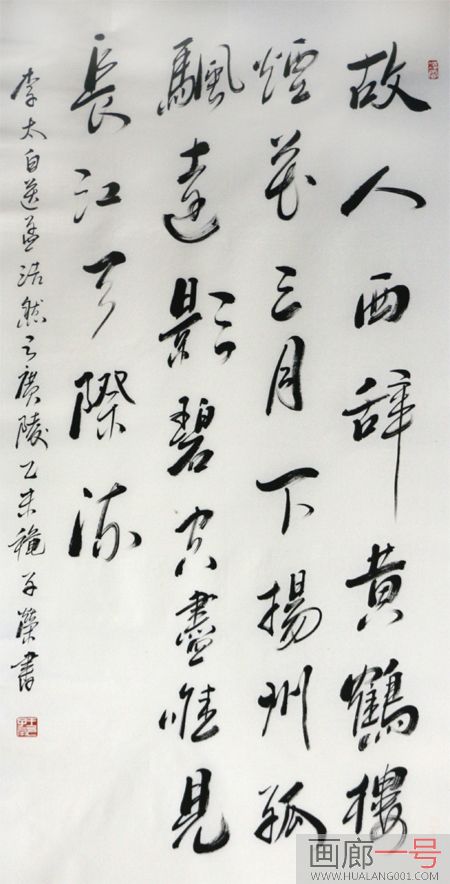 故人西辞黄鶴樓
煙花三月下揚州孤
颿遠影碧空盡唯見
長江天際流
李太白送孟浩然之廣陵乙未穐子榮書
画廊一号
WWW.HUALANG001.COM